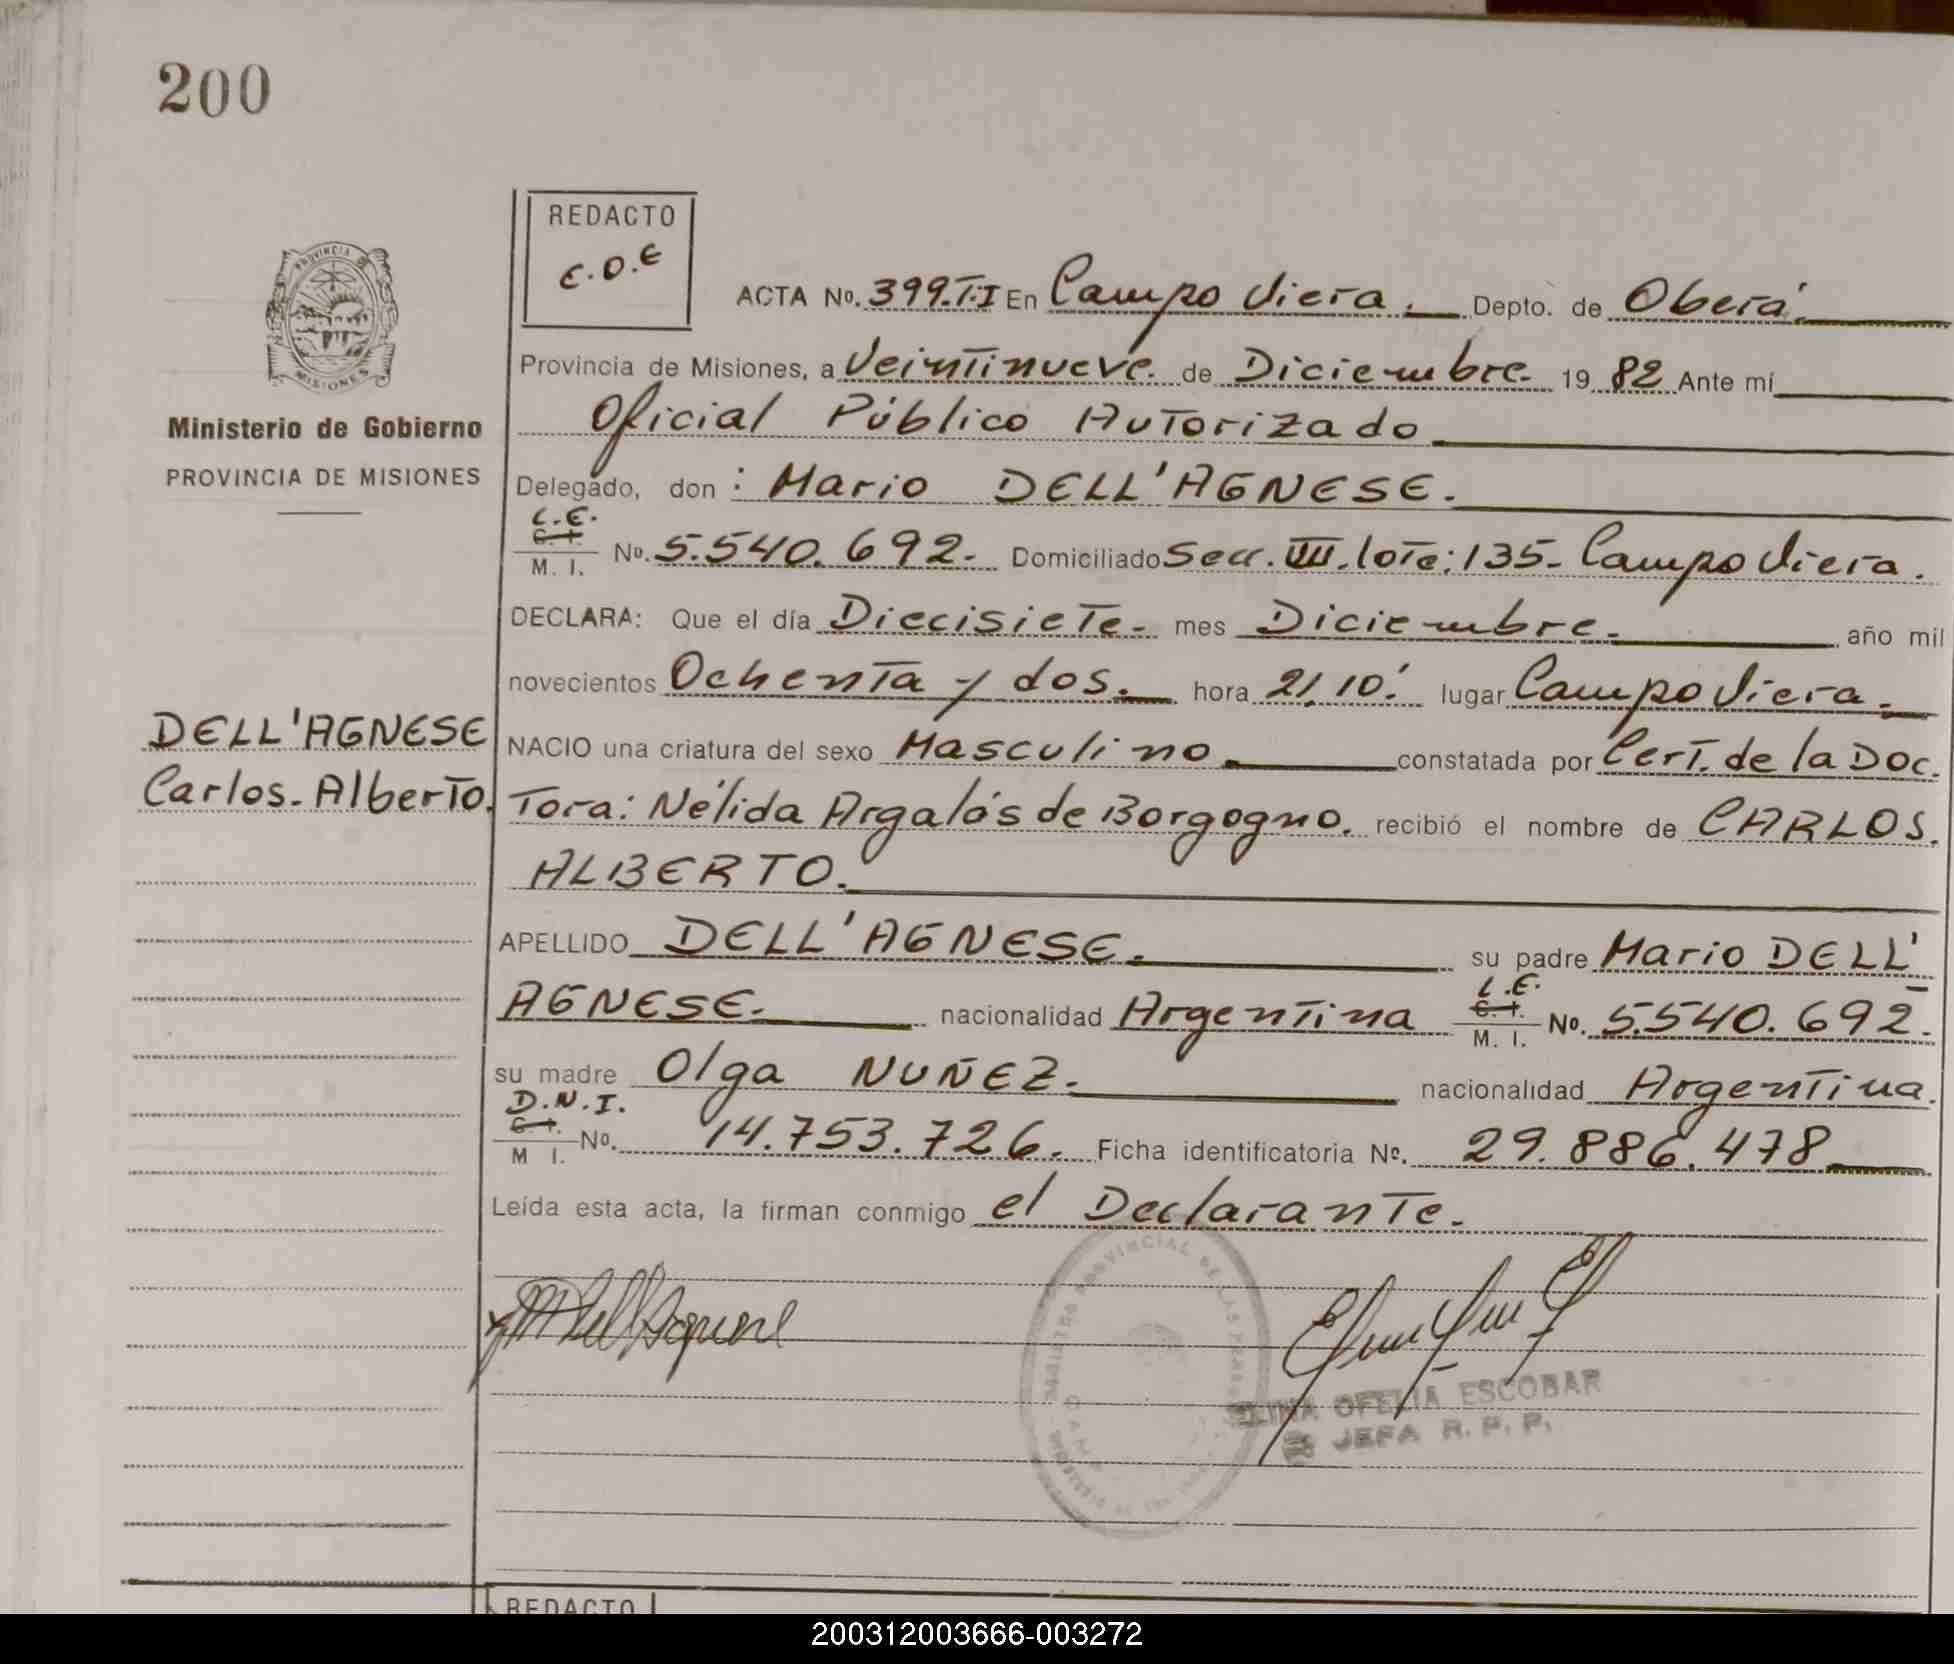 200
REDACTO
E.O.E
PROVINCIA DE
MISIONES
Ministerio de Gobierno
PROVINCIA DE MISIONES
ACTA No. 399.T.I En Campo Viera. Depto. de Oberá.
Provincia de Misiones, a Veintinueve. de Diciembre. 19 82 Ante mí
Oficial Público Autorizado
Delegado, don: Mario DELL'AGNESE.
L.E.
C.I.
M. I. No. 5.540.692. Domiciliado Secc. VIII. lote: 135. Campo Viera.
DECLARA: Que el día Diecisiete. mes Diciembre. año mil
novecientos Ochenta y dos. hora 21,10.' lugar Campo Viera.
DELL'AGNESE
Carlos. Alberto.
NACIO una criatura del sexo Masculino. constatada por Cert. de la Doc.
Tora: Nélida Argalás de Borgogno. recibió el nombre de CARLOS.
ALBERTO.
APELLIDO DELL'AGNESE. su padre Mario DELL'
AGNESE. nacionalidad Argentina L.E. C.I. M. I. No. 5.540.692.
su madre Olga NUÑEZ. nacionalidad Argentina.
D.N.I.
C.I.
M I. No. 14.753.726. Ficha identificatoria No. 29.886.478
Leída esta acta, la firman conmigo el Declarante.
M Dell'Agnese
PROVINCIAL DE LAS PERSONAS
ELINA OFELIA ESCOBAR
JEFA R. P. P.
REDACTO
200312003666-003272